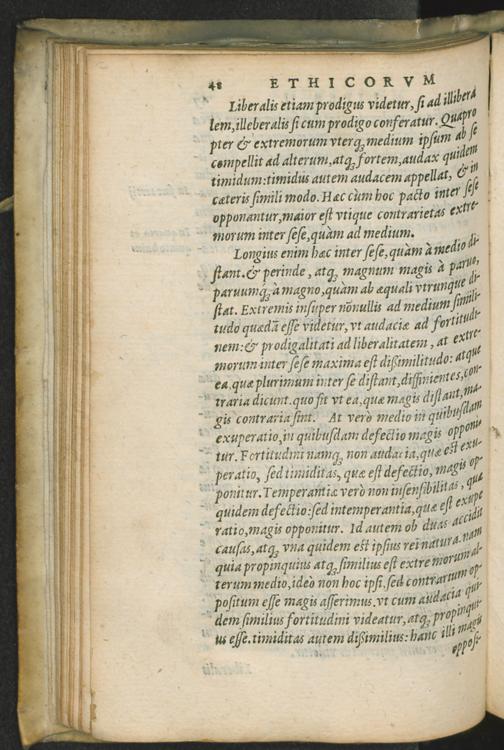 48 ETHICORVM
Liberalis etiam prodigus videtur, si ad illibera
lem, illeberalis si cum prodigo conferatur. Quapro
pter & extremorum vterq; medium ipsum ab se
compellit ad alterum, atq; fortem, audax quidem
timidum: timidus autem audacem appellat, & in
cæteris simili modo. Hæc cùm hoc pacto inter sese
opponantur, maior est vtique contrarietas extre-
morum inter sese, quàm ad medium.
Longius enim hæc inter sese, quàm à medio di-
stant. & perinde, atq; magnum magis à paruo,
paruumq́; à magno, quàm ab æquali vtrunque di-
stat. Extremis insuper nōnullis ad medium simili-
tudo quædā esse videtur, vt audaciæ ad fortitudi-
nem: & prodigalitati ad liberalitatem, at extre-
morum inter se se maxima est dißimilitudo: atque
ea, quæ plurimum inter se distant, diffinientes, con-
traria dicunt. quo fit vt ea, quæ magis distant, ma-
gis contraria sint. At verò medio in quibusdam
exuperatio, in quibusdam defectio magis opponi-
tur. Fortitudini namq; non audacia, quæ est exu-
peratio, sed timiditas, quæ est defectio, magis op-
ponitur. Temperantiæ verò non insensibilitas, quæ
quidem defectio: sed intemperantia, quæ est exupe
ratio, magis opponitur. Id autem ob duas accidit
causas, atq; vna quidem est ipsius rei natura. nam
quia propinquius atq; similius est extremorum al-
terum medio, ideò non hoc ipsi, sed contrarium op-
positum esse magis asserimus. vt cum audacia qui-
dem similius fortitudini videatur, atq; propinqui-
us esse. timiditas autem dißimilius: hanc illi magis
opposi-